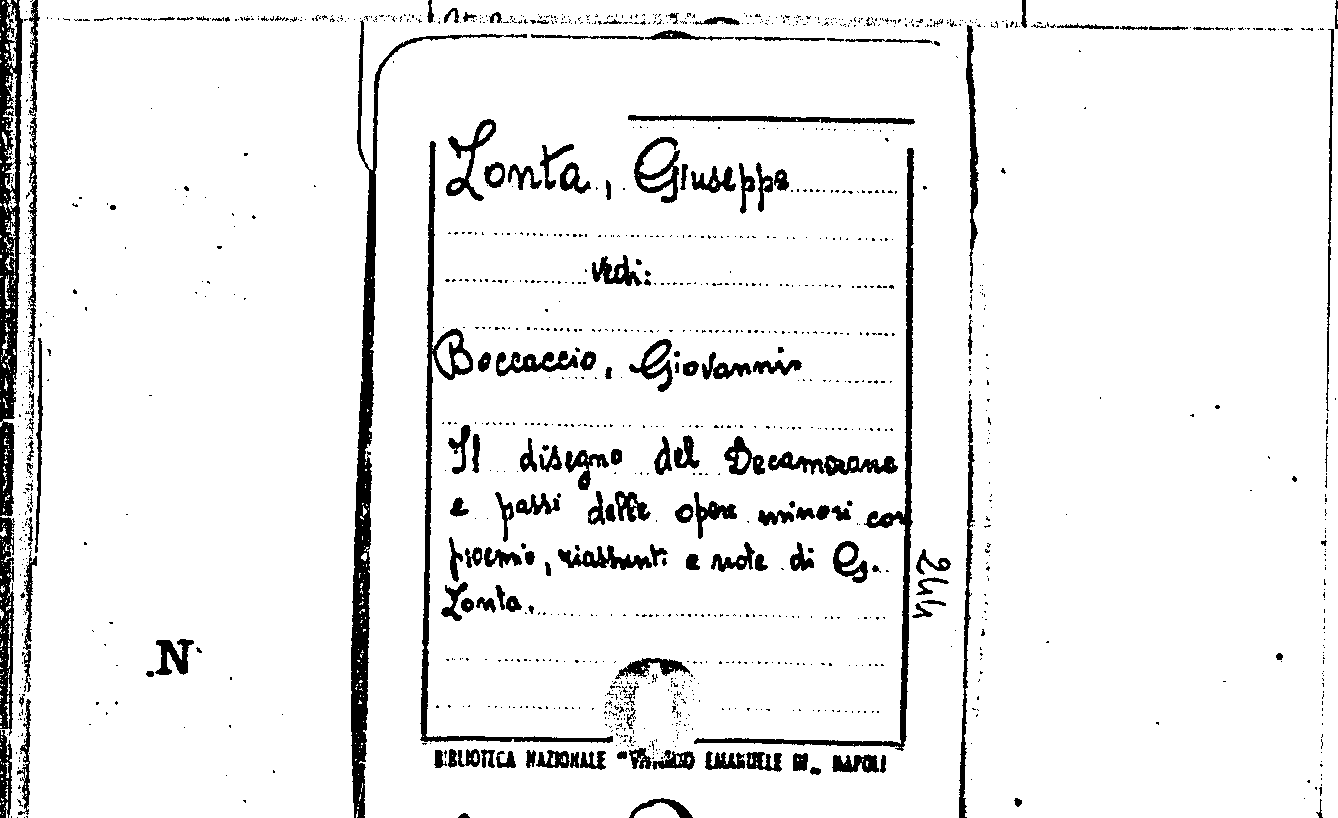 Zonta, Giuseppe
vedi:
Boccaccio, Giovanni
Il disegno del Decamerone
e passi delle opere minori con
proemio, riassunti e note di G.
Zonta.
244
.N
BIBLIOTECA NAZIONALE "VITTORIO EMANUELE III„ NAPOLI